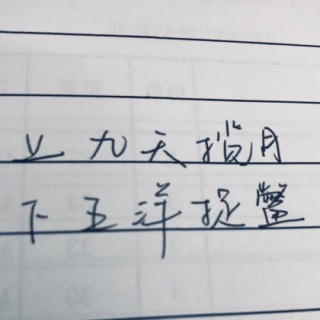 上九天揽月
下五洋捉鳖